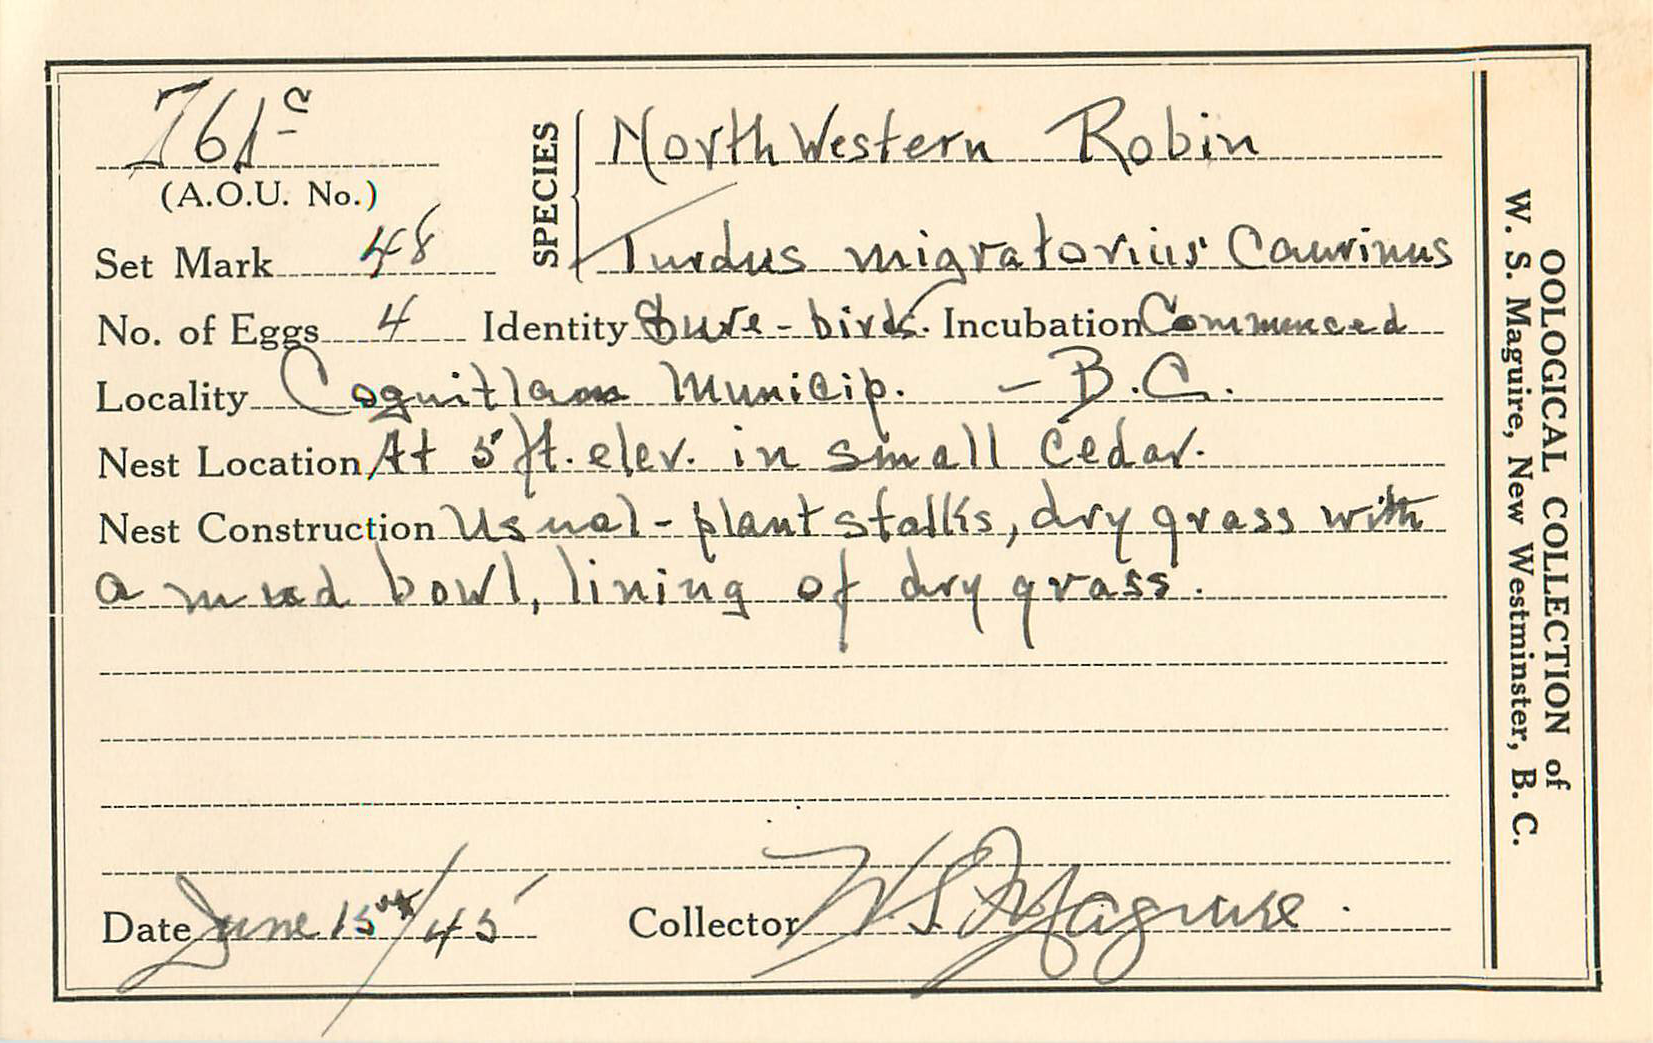 761c
(A.O.U. No.)
SPECIES
North Western Robin
Turdus migratorius Caurinus
Set Mark 48
No. of Eggs 4 Identity Sure - birds. Incubation Commenced
Locality Coquitlam Municip. - B.C.
Nest Location At 5 ft. elev. in small cedar.
Nest Construction Usual - plant stalks, dry grass with
a mud bowl, lining of dry grass.
Date June 15th/45 Collector W S Maguire.
OOLOGICAL COLLECTION of
W. S. Maguire, New Westminster, B. C.